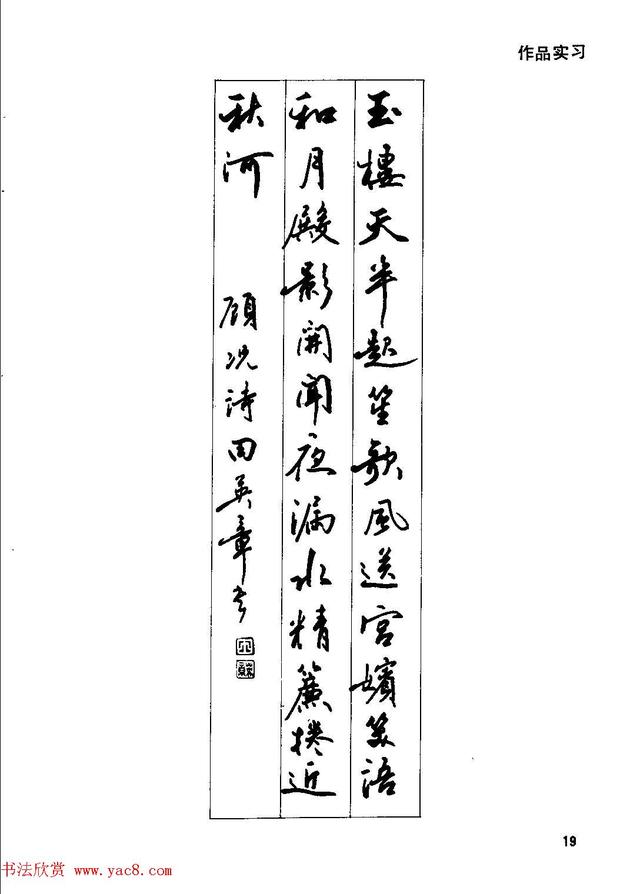 作品实习
玉樓天半起笙歌風送宫嬪笑語
和月殿影開聞夜漏水精簾捲近
秋河 顧况詩田英章书
19
书法欣赏 www.yac8.com